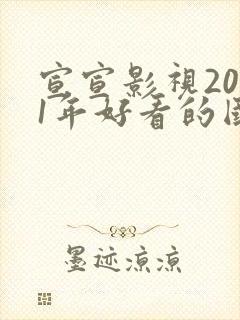 宣宣影視20
1年好看的国
墨迹凉凉